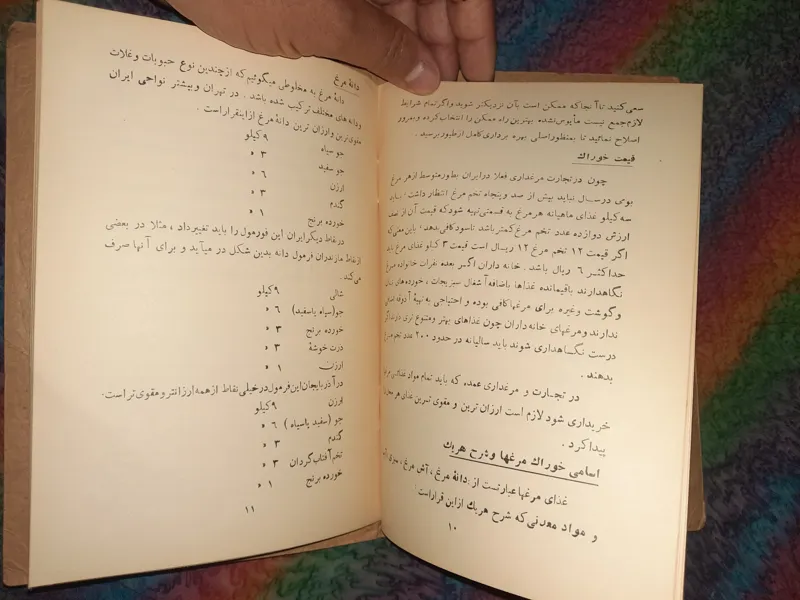 سعی کنید تا آنجا که ممکن است بآن نزدیکتر شوید واگر تمام شرایط
لازم جمع نیست مأیوس نشده بهترین راه ممکن را انتخاب کرده و بمرور
اصلاح نمائید تا بمنظور اصلی بهره برداری کامل از طیور برسید .
قیمت خوراك
چون در تجارت مرغداری فعلا در ایران بطور متوسط از هر مرغ
بومی در سال نباید بیش از صد و پنجاه تخم مرغ انتظار داشت ، نباید
سه کیلو غذای ماهیانه هر مرغ به قسمتی تهیه شود که قیمت آن از صد
ارزش دوازده عدد تخم مرغ کمتر باشد تا سود کافی بدهد ، باین معنی که
اگر قیمت ۱۲ تخم مرغ ۱۲ ریال است قیمت ۳ کیلو غذای مرغ باید
حداکثر ۶ ریال باشد . خانه داران اگر بعده نفرات خانواده مرغ
نگاهدارند باقیمانده غذاها باضافه آشغال سبزیجات ، خورده های نان
و گوشت وغیره برای مرغها کافی بوده و احتیاجی به تهیۀ آذوقه اضافی
ندارند و مرغهای خانه داران چون غذاهای بهتر و متنوع تری دارند اگر
درست نگاهداری شوند باید سالیانه در حدود ۲۰۰ عدد تخم مرغ
بدهند .
در تجارت و مرغداری عمده که باید تمام مواد غذائی مرغ
خریداری شود لازم است ارزان ترین و مقوی ترین غذای هر محل را
پیدا کرد .
اسامی خوراك مرغها و شرح هریك
غذای مرغها عبارتست از : دانۀ مرغ ، آش مرغ ، سبزی
و مواد معدنی که شرح هریك از این قرار است :
۱۰
دانۀ مرغ
دانۀ مرغ به مخلوطی میگوئیم که از چندین نوع حبوبات و غلات
و دانه های مختلف ترکیب شده باشد . در تهران و بیشتر نواحی ایران
مقوی ترین و ارزان ترین دانۀ مرغ از اینقرار است .
جو سیاه ۹ کیلو
جو سفید ۳ »
ارزن ۶ »
گندم ۳ »
خورده برنج ۱ »
در نقاط دیگر ایران این فورمول را باید تغییر داد ، مثلا در بعضی
از نقاط مازندران فرمول دانه بدین شکل در میآید و برای آنها صرف
می کند .
شالی ۹ کیلو
جو (سیاه یا سفید) ۶ »
خورده برنج ۳ »
ذرت خوشۀ ۳ »
ارزن ۱ »
در آذربایجان این فرمول در خیلی نقاط از همه ارزانتر و مقوی تر است .
ارزن ۹ کیلو
جو (سفید یا سیاه) ۶ »
گندم ۳ »
تخم آفتاب گردان ۳ »
خورده برنج ۱ »
۱۱